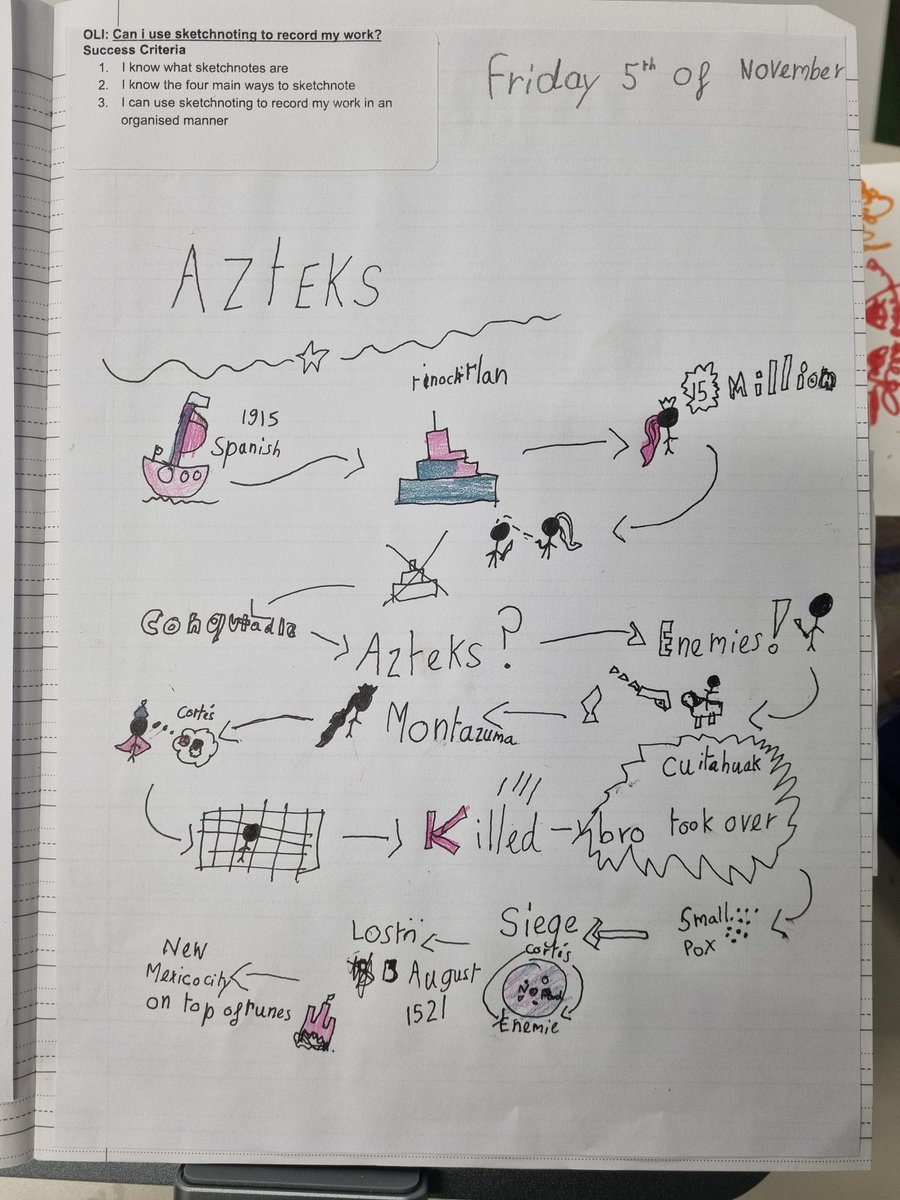 OLI: Can i use sketchnoting to record my work?
Success Criteria
1. I know what sketchnotes are
2. I know the four main ways to sketchnote
3. I can use sketchnoting to record my work in an
organised manner
Friday 5th of November
AZtEKS
1915
Spanish
15 Million
Azteks?
Enemies!
Montazuma
Cortés
Killed
Cuitahuak
bro took over
Small
Pox
Siege
Cortés
Enemie
August
1521
New
Mexico city
on top of runes